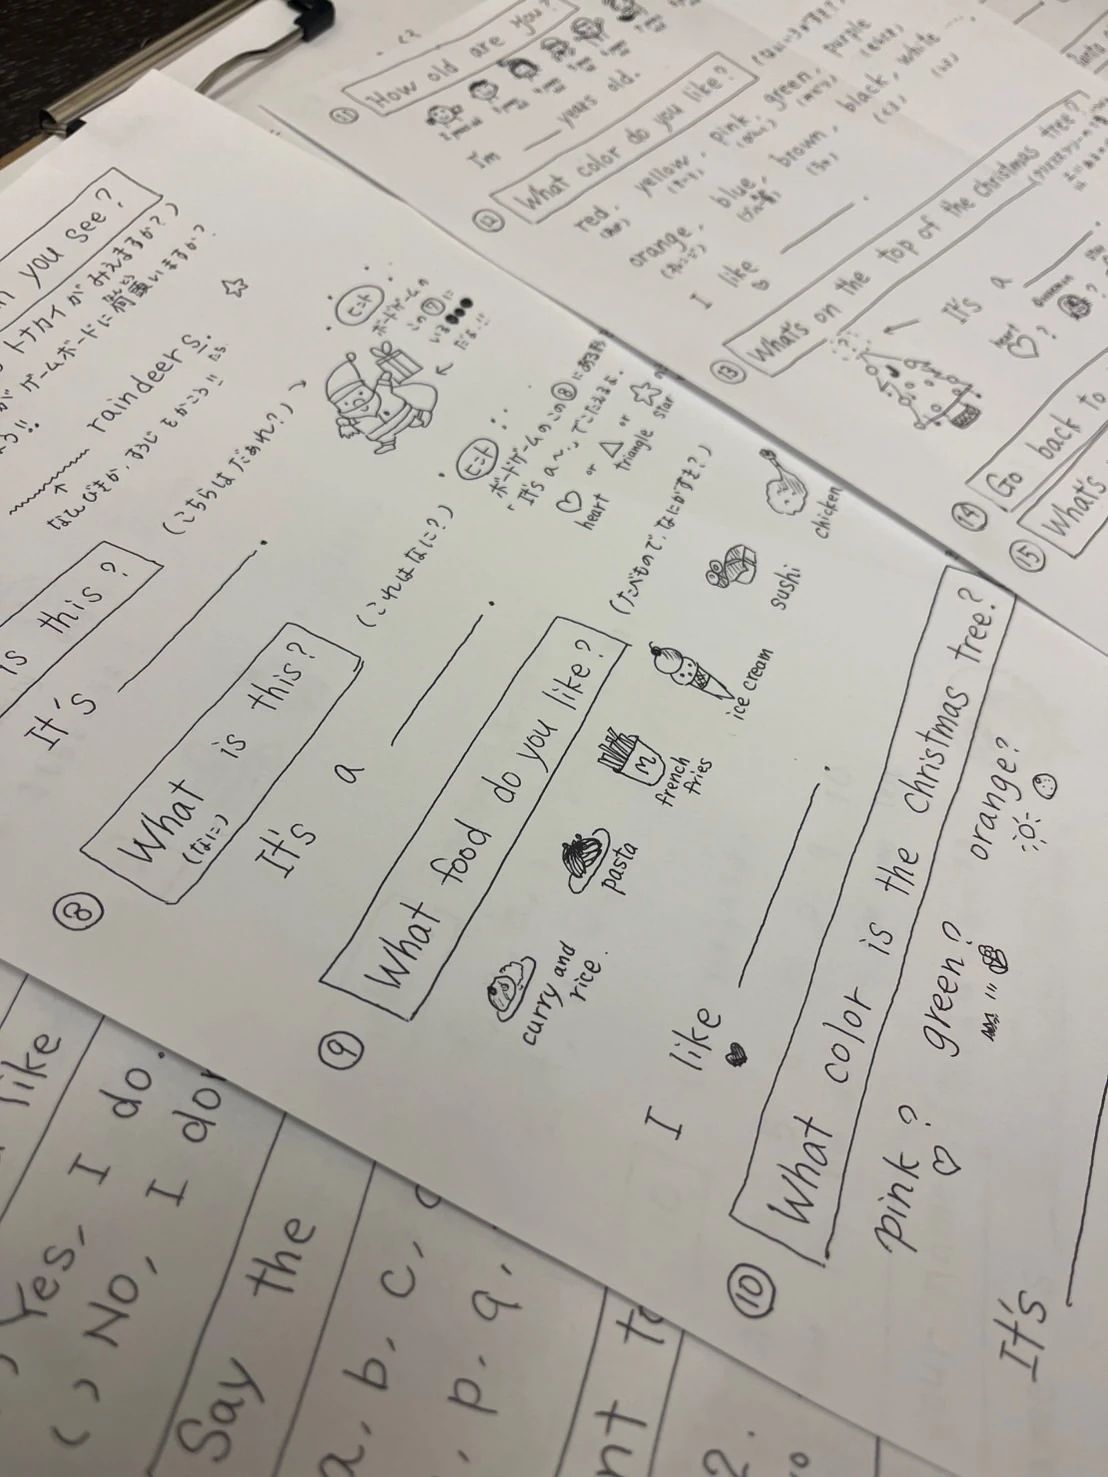 you see?
トナカイが みえますか?)
ゲームボードに 何頭いますか?
raindeer s.
なんびきか、すうじ をかこう!!
is this?
(こちらはだあれ?)
It's ______.
ヒント
ボードゲームの
この⑦に
いる●●●
だよ!!
⑧ What is this?
(なに)
(これはなに?)
It's a ______.
ヒント
ボードゲームのこの⑧にある形
「It's a ~.」でこたえるよ。
heart or triangle or star
⑨ What food do you like?
(たべもので、なにがすき?)
curry and rice.
pasta
french fries
M
ice cream
sushi
chicken
I like ______.
⑩ What color is the christmas tree?
pink? green? orange?
It's ______
⑪ How old are you?
I'm ______ years old.
⑫ What color do you like?
red, yellow, pink, green, purple
orange, blue, brown, black, white
I like ______.
⑬ What's on the top of the christmas tree?
It's a ______.
heart
?
⑭ Go back to
⑮ What's
like
Yes, I do.
No, I don
Say the
a, b, c,
p, q,
nt to
2.